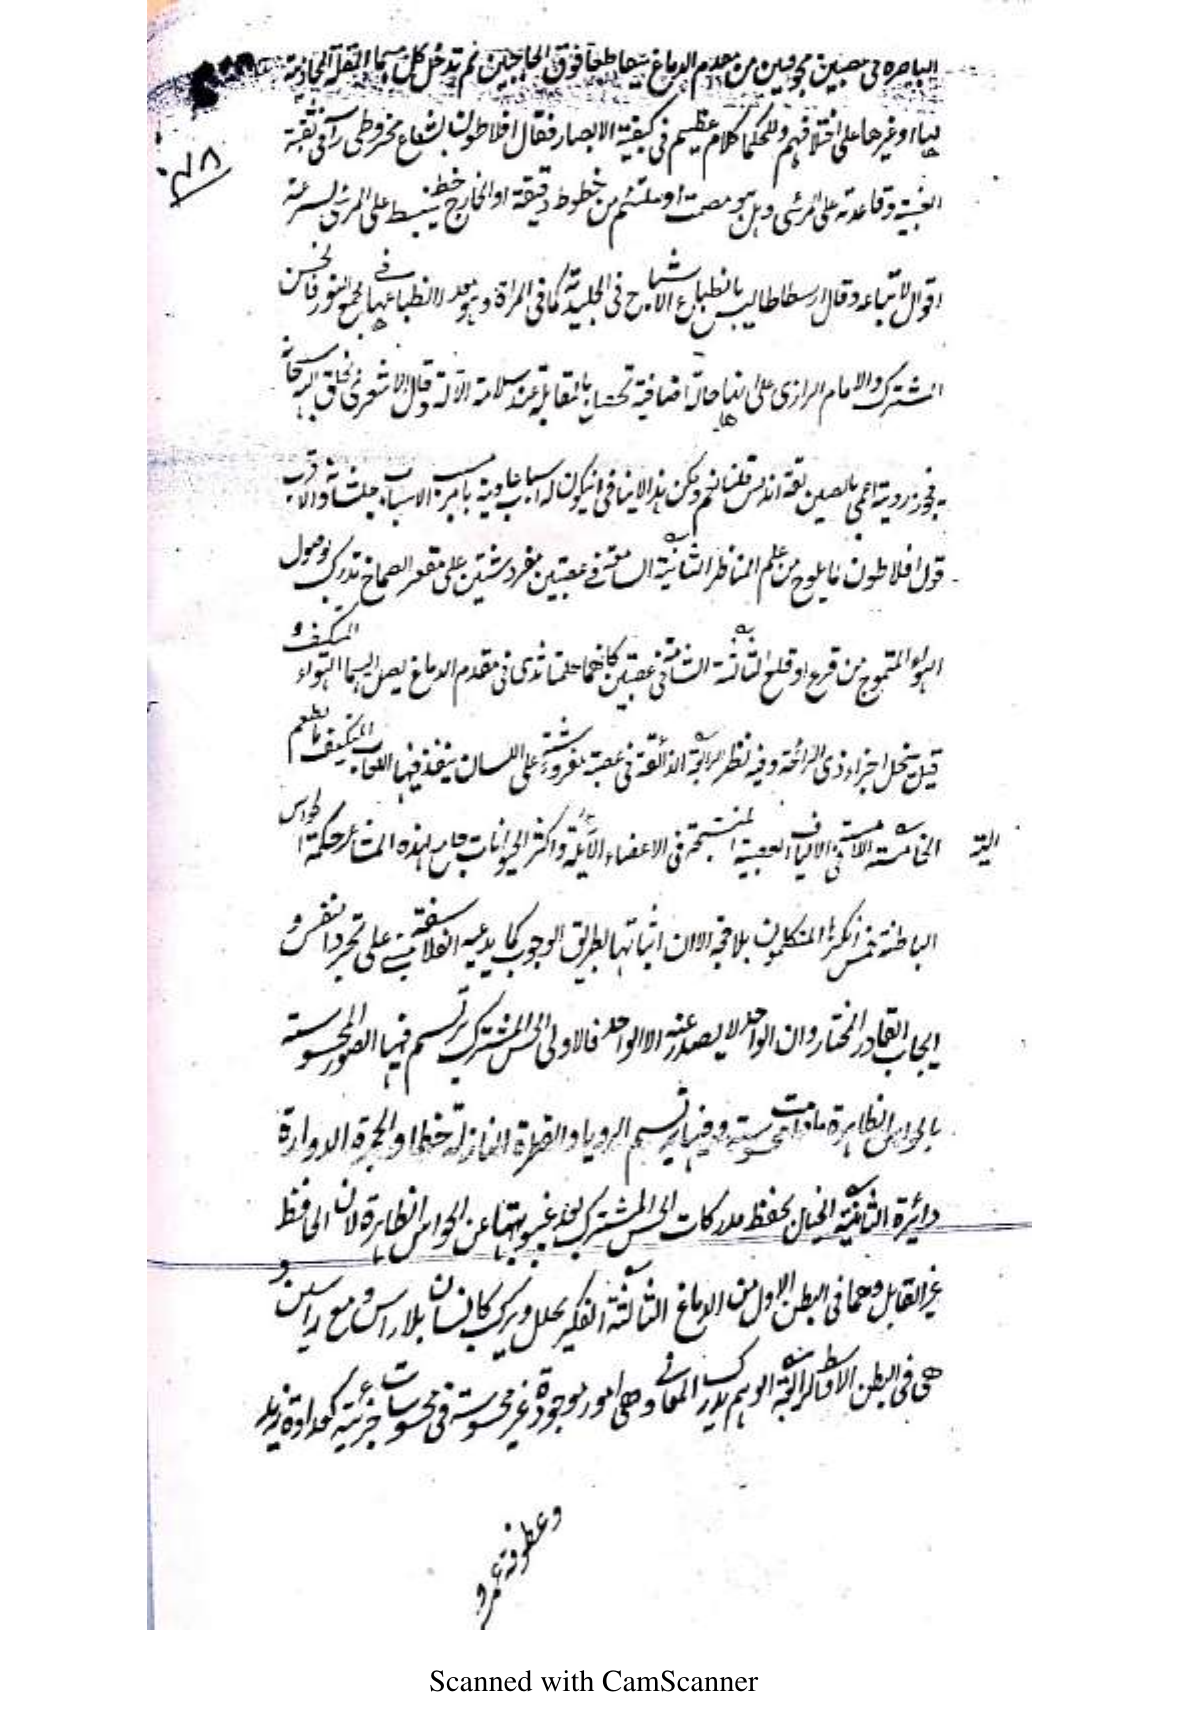 الباصرة فی عصبتین مجوفتین من مقدم الدماغ یتقاطعا فوق الحاجبین ثم تدخل کل منهما المقلة المحاذیة
لها او غیرها علی اختلافهم وللحکما کلام عظیم فی کیفیة الابصار فقال افلاطون بشعاع مخروطی رأسه فی ثقبة
۱۸
العنبیة وقاعدته علی المرئی وهل هو مصمت او ملتئم من خطوط دقیقة او الخارج خط ینبسط علی المرئی بسرعة
اقوال لاتباعه وقال ارسطاطالیس بانطباع الاشباح فی الجلیدیة کما فی المراة وهو معد لانطباعها فی مجمع النور فالحس
المشترک والامام الرازی علی انها حالة اضافیة تحتاج بالمقابلة عند سلامة الآلة وقال الاشعری یخلق الله سبحانه
فیجوز رویة اعمی بالصین بقة اندلس قلنا نعم ولکن هذا لا ینافی ان یکون له اسباب عادیة یامر الاسباب والاقرب
قول افلاطون لما یلوح من علم المناظر الثانیة السامعة فی عصبتین مفروشتین علی مقعر الصماخ تدرک بوصول
الهواء المتموج من قرع او قلع الثالثة الشامة فی عصبتین کانهما حلمتا ثدی فی مقدم الدماغ یصل الیهما الهواء المتکیف و
قیل یتحلل اجزاء ذی الرائحة وفیه نظر الرابعة الذائقة فی عصبة مفروشة علی اللسان ینفذ فیها اللعاب المتکیف بالطعم
الخامسة اللامسة فی الالیاف العصبیة المنتسجة فی الاعضاء الآلیة واکثر الحیوانات جامع لهذه المشاعر حکمة الحواس
الباطنة خمس انکرها المتکلمون بلا حجة الا ان اثباتها بطریق الوجوب کما یدعیه الفلاسفة مبنی علی تجرد النفس و
ایجاب القادر المختار وان الواحد لا یصدر عنه الا الواحد فالاولی الحس المشترک ترتسم فیها الصور المحسوسة
بالحواس الظاهرة ما دامت محسوسة وفیها یرتسم الرویا والقطرة النازلة خطا والجمرة الدوارة
دائرة الثانیة الخیال یحفظ مدرکات الحس المشترک بعد غیبوبتها عن الحواس الظاهرة لان الحافظ
غیر القابل وهما فی البطن الاول من الدماغ الثالثة الفکر یحلل ویرکب کانسان بلا راس و مع راسین و
هی فی البطن الاوسط الرابعة الوهم یدرک المعانی وهی امور موجودة غیر محسوسة فی محسوسات جزئیة کعداوة زید
وعطوفة عمرو
Scanned with CamScanner